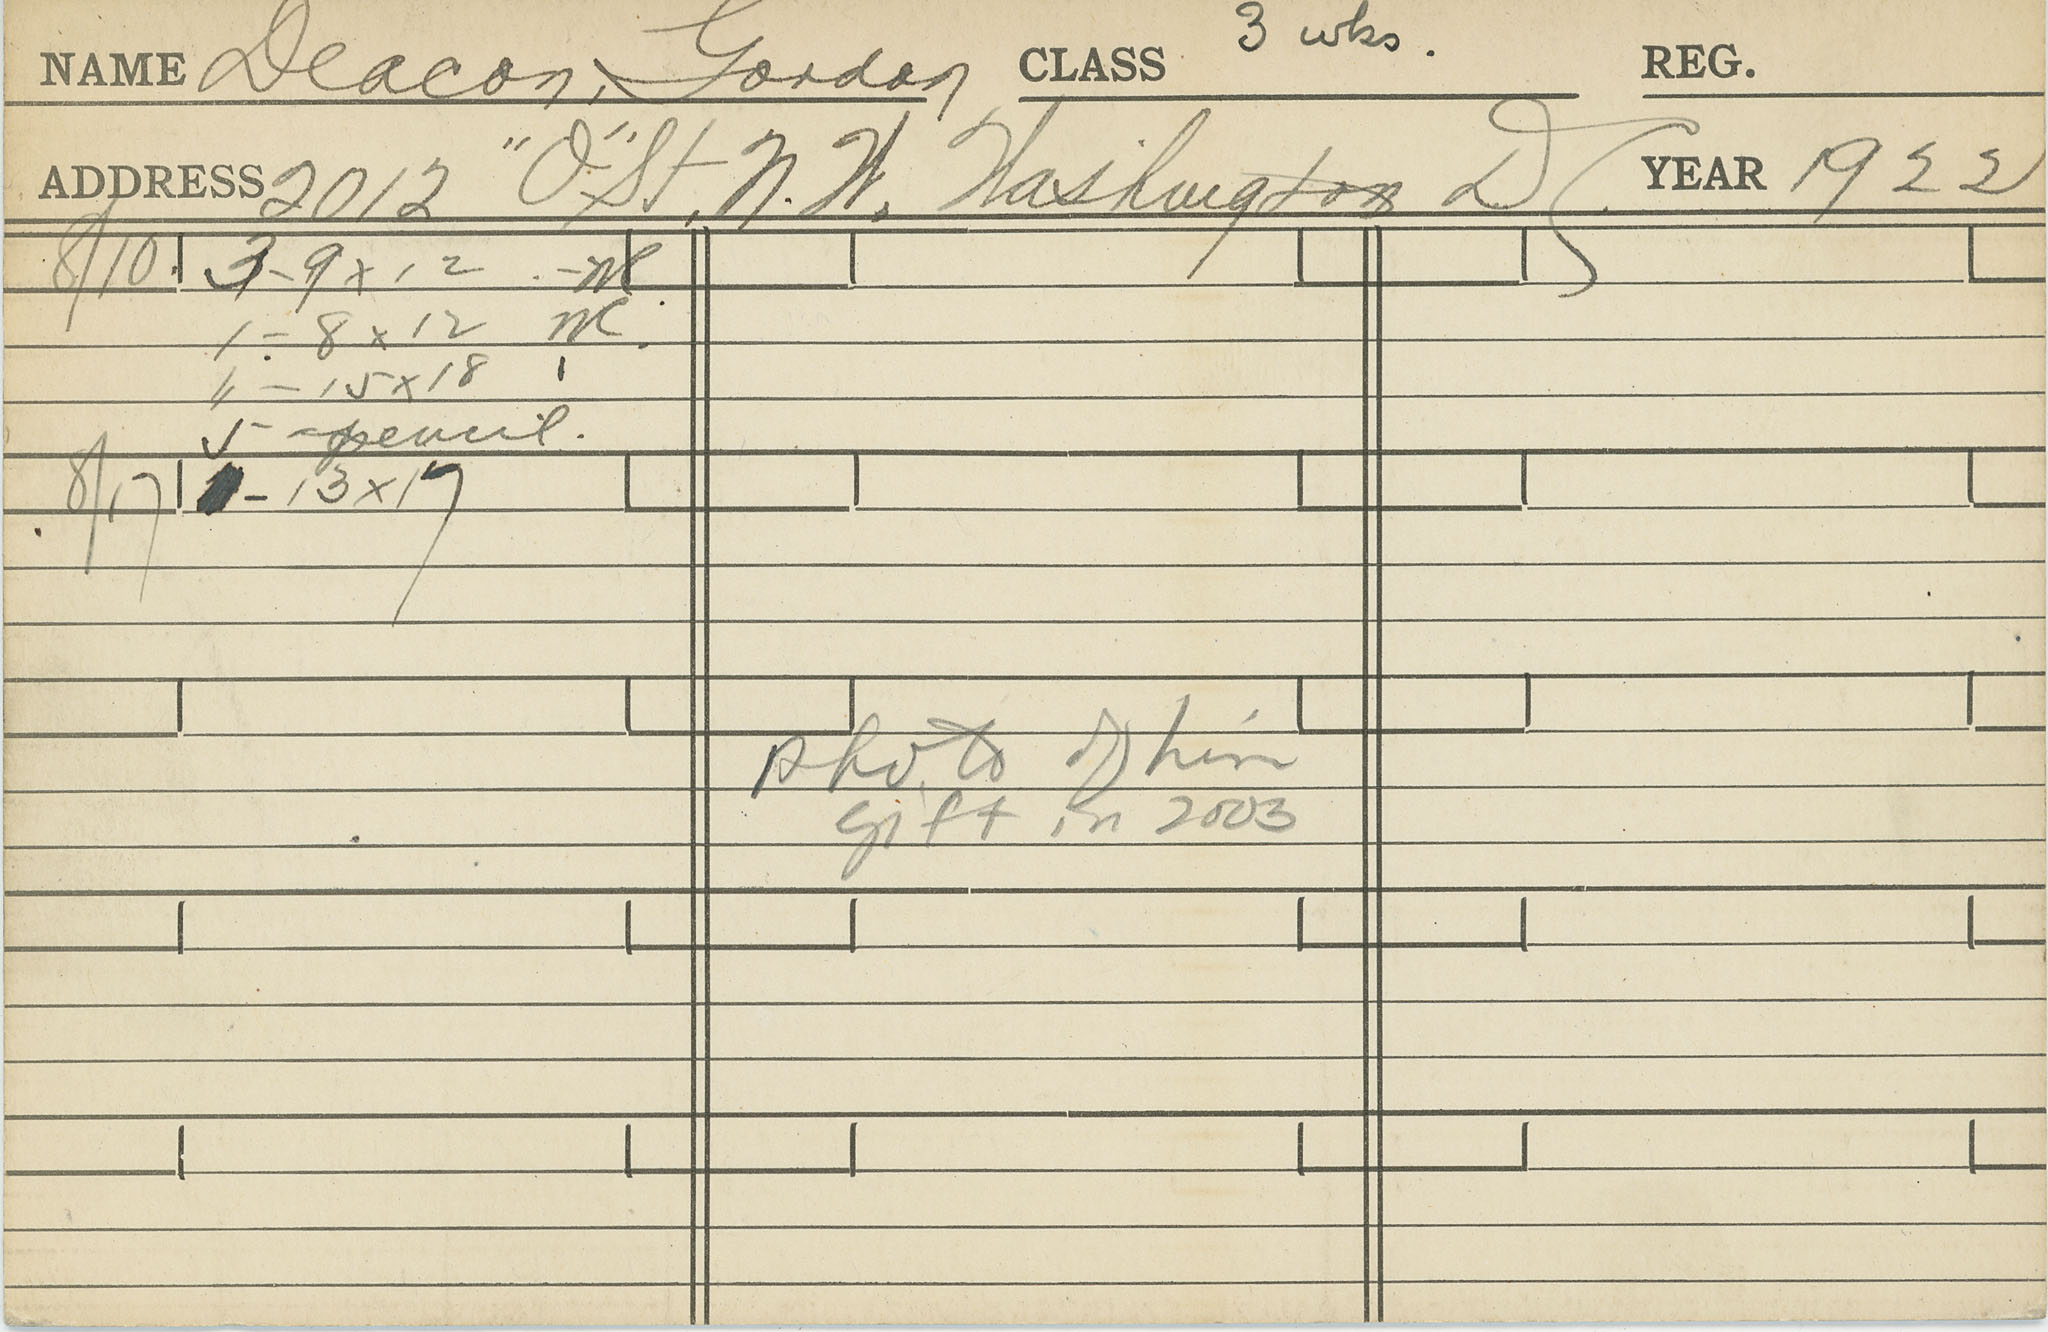 NAME Deacon, Gordon CLASS 3 wks. REG.
ADDRESS 2012 "O" St, N.W. Washington D.C. YEAR 1922
8/10 3 - 9 x 12
1 - 8 x 12
" - 15 x 18
5 - pencil.
8/17 - 13 x 17
photo of him
gift in 2003